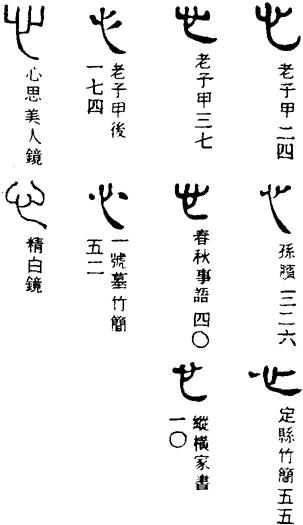 老子甲 二四
孫臏 三二六
定縣竹簡 五五
老子甲三七
春秋事語 四〇
縱橫家書
一〇
老子甲後
一七四
一號墓竹簡
五二
心思美人鏡
精白鏡